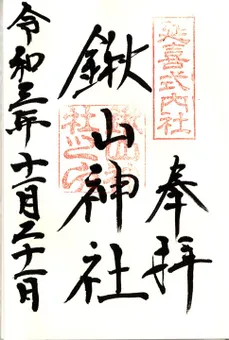 延喜式内社
奉拝
鍬山神社
令和三年十一月二十一日